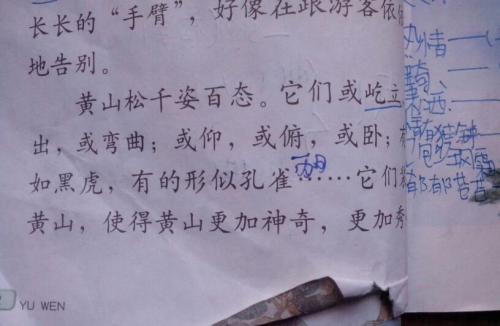 长长的“手臂”，好像在跟游客依
地告别。
黄山松千姿百态。它们或屹立
出，或弯曲；或仰，或俯，或卧；
如黑虎，有的形似孔雀……它们
黄山，使得黄山更加神奇，更加秀
YU WEN